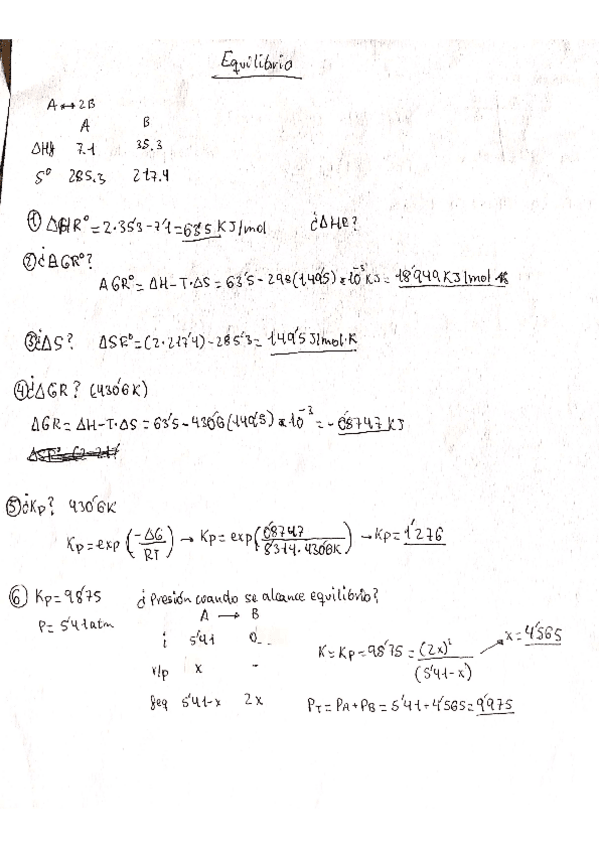 Equilibrio
A ↔ 2B
A B
ΔHf 7.1 35.3
S° 285.3 217.4
① ΔHR° = 2·35'3 - 7'1 = 63'5 KJ/mol ¿ΔHR?
② ¿ΔGR°?
ΔGR° = ΔH - T·ΔS = 63'5 - 298(149'5)·10⁻³ KJ = 18'949 KJ/mol
③ ¿ΔS? ΔSR° = (2·217'4) - 285'3 = 149'5 J/mol·K
④ ¿ΔGR? (430'6K)
ΔGR = ΔH - T·ΔS = 63'5 - 430'6(149'5)·10⁻³ = -0'8747 KJ
⑤ ¿Kp? 430'6K
Kp = exp(-ΔG/RT) → Kp = exp(0'8747/8'314·430'6K) → Kp = 1'276
⑥ Kp = 9'875 ¿Presión cuando se alcance equilibrio?
P = 5'41 atm
A → B
i 5'41 0
r/p x -
feq 5'41-x 2x
K = Kp = 9'875 = (2x)²/(5'41-x) → x = 4'565
PT = PA + PB = 5'41 + 4'565 = 9'975